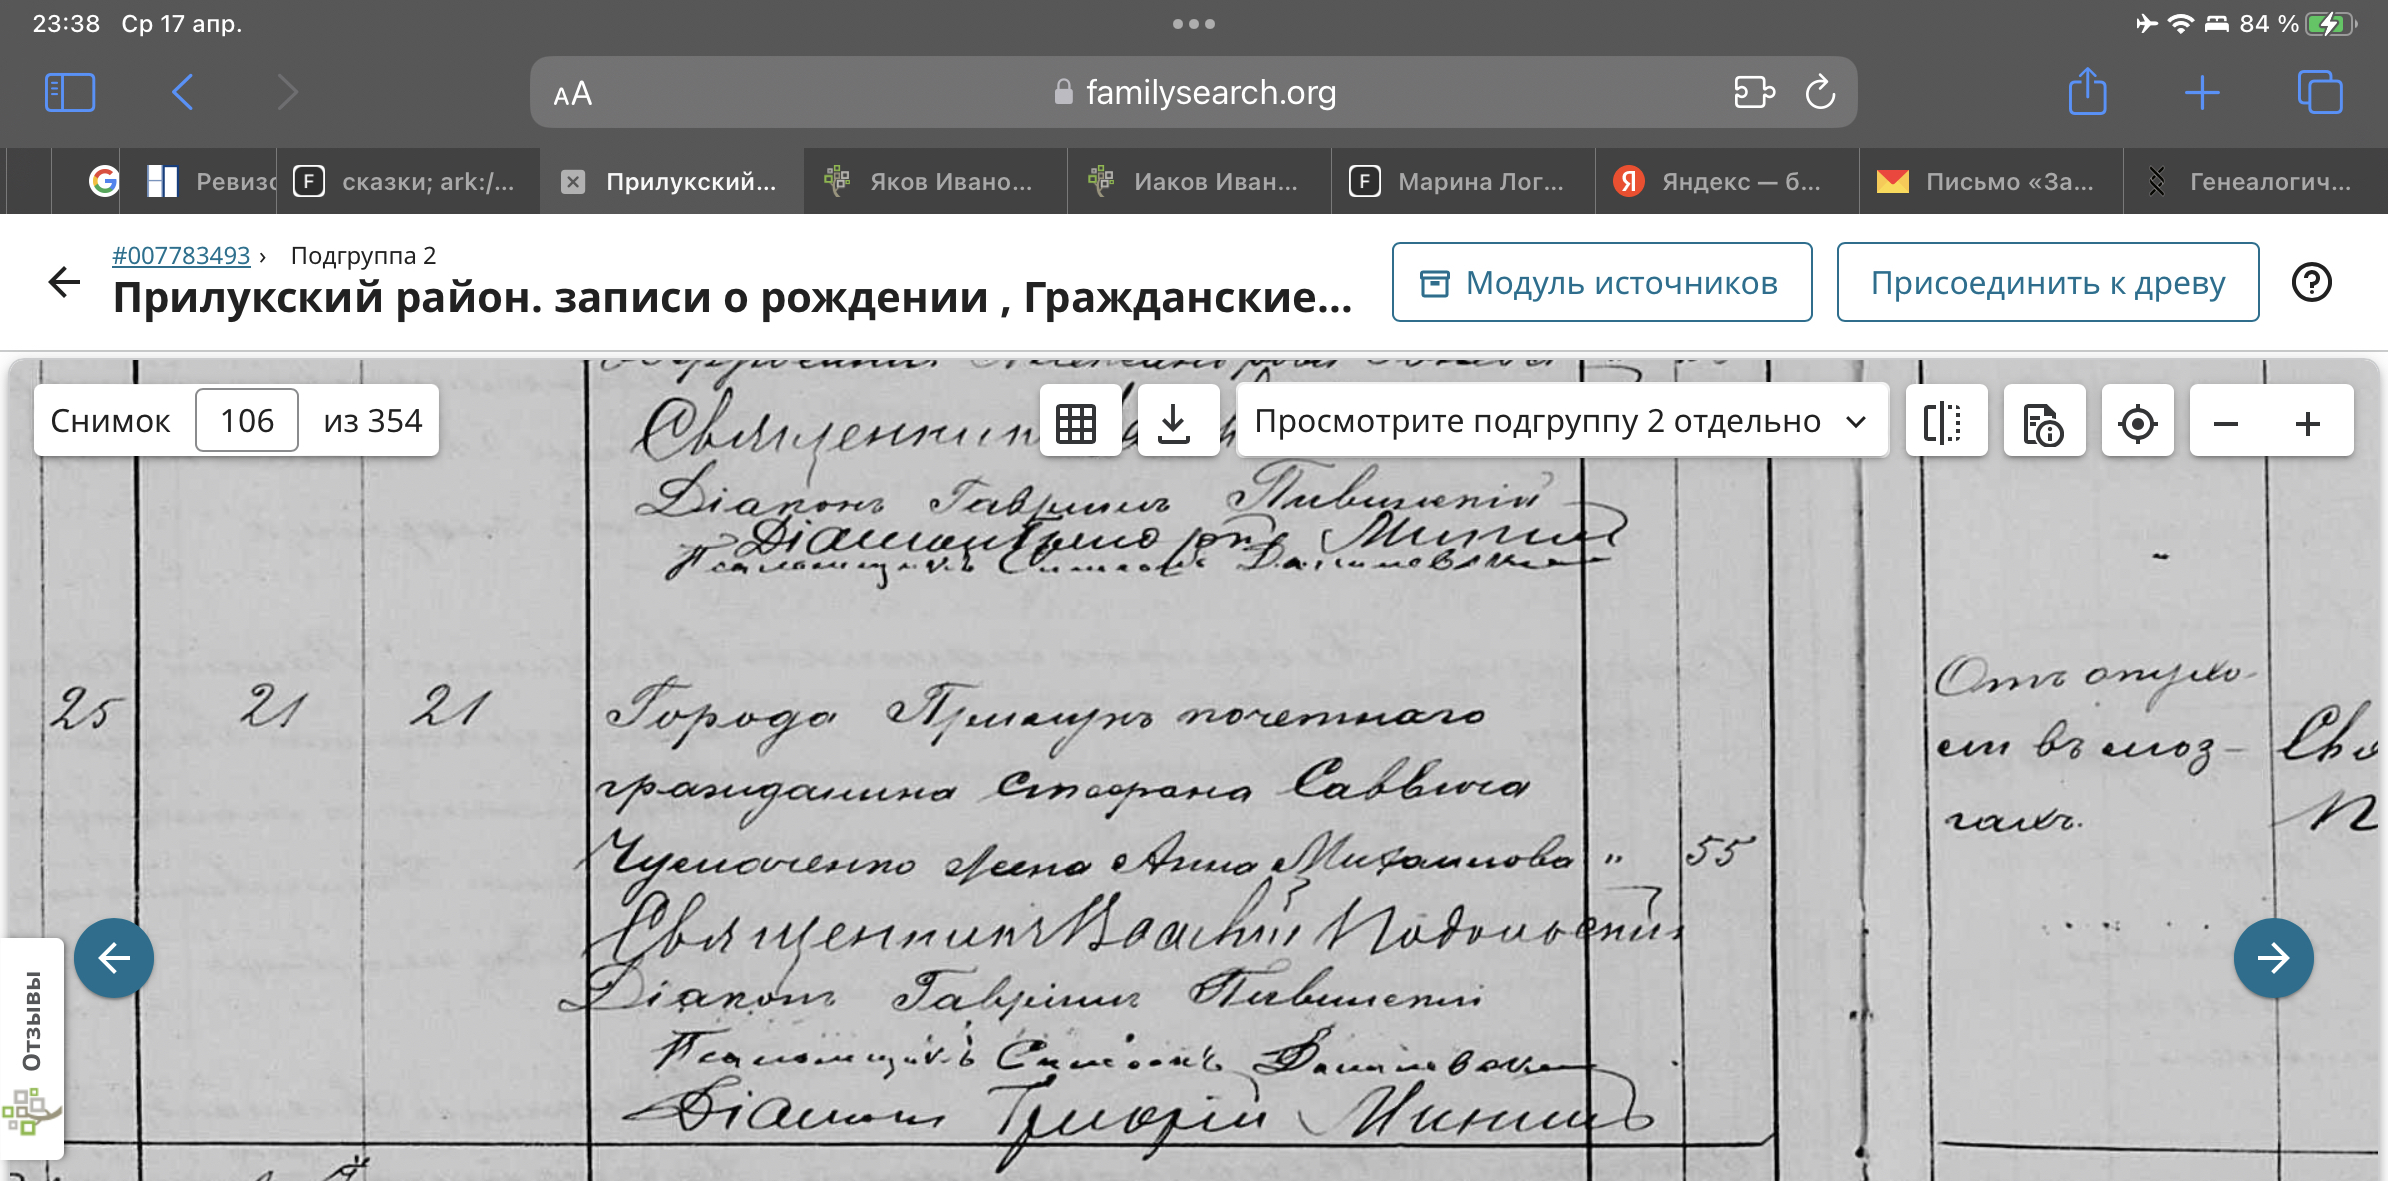 23:38 Ср 17 апр.
84 %
AA familysearch.org
Ревизс
F сказки; ark:/...
Прилукский...
Яков Ивано...
Иаков Иван...
F Марина Лог...
Я Яндекс — б...
Письмо «За...
Генеалогич...
#007783493 › Подгруппа 2
Прилукский район. записи о рождении , Гражданские...
Модуль источников
Присоединить к древу
Снимок 106 из 354
Просмотрите подгруппу 2 отдельно
Священникъ
Діаконъ Гавріилъ
Псаломщикъ Симеонъ Даниловскій
25 21 21 Города Прилукъ почетнаго
гражданина Стефана Саввича
Чумаченко жена Анна Михаилова " 55
Священникъ Василій Подольскій
Діаконъ Гавріилъ
Псаломщикъ Симеонъ Даниловскій
Діаконъ Григорій
Отъ опухо-
ли въ моз-
гахъ.
Отзывы